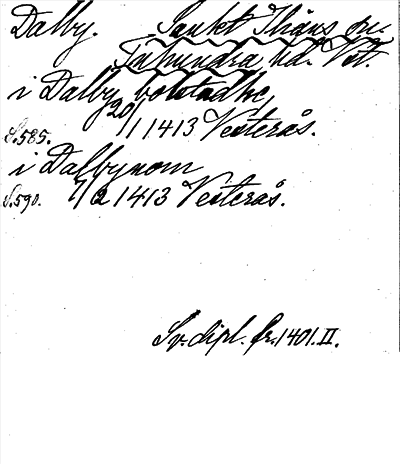 Dalby. Sankt Ilians sn.
Tuhundra hd. Vstm.
i Dalby bolstadhe,
S.585. 20/1 1413 Vesterås.
i Dalbynom
S.590. 7/2 1413 Vesterås.
Sv. dipl. fr. 1401. II.